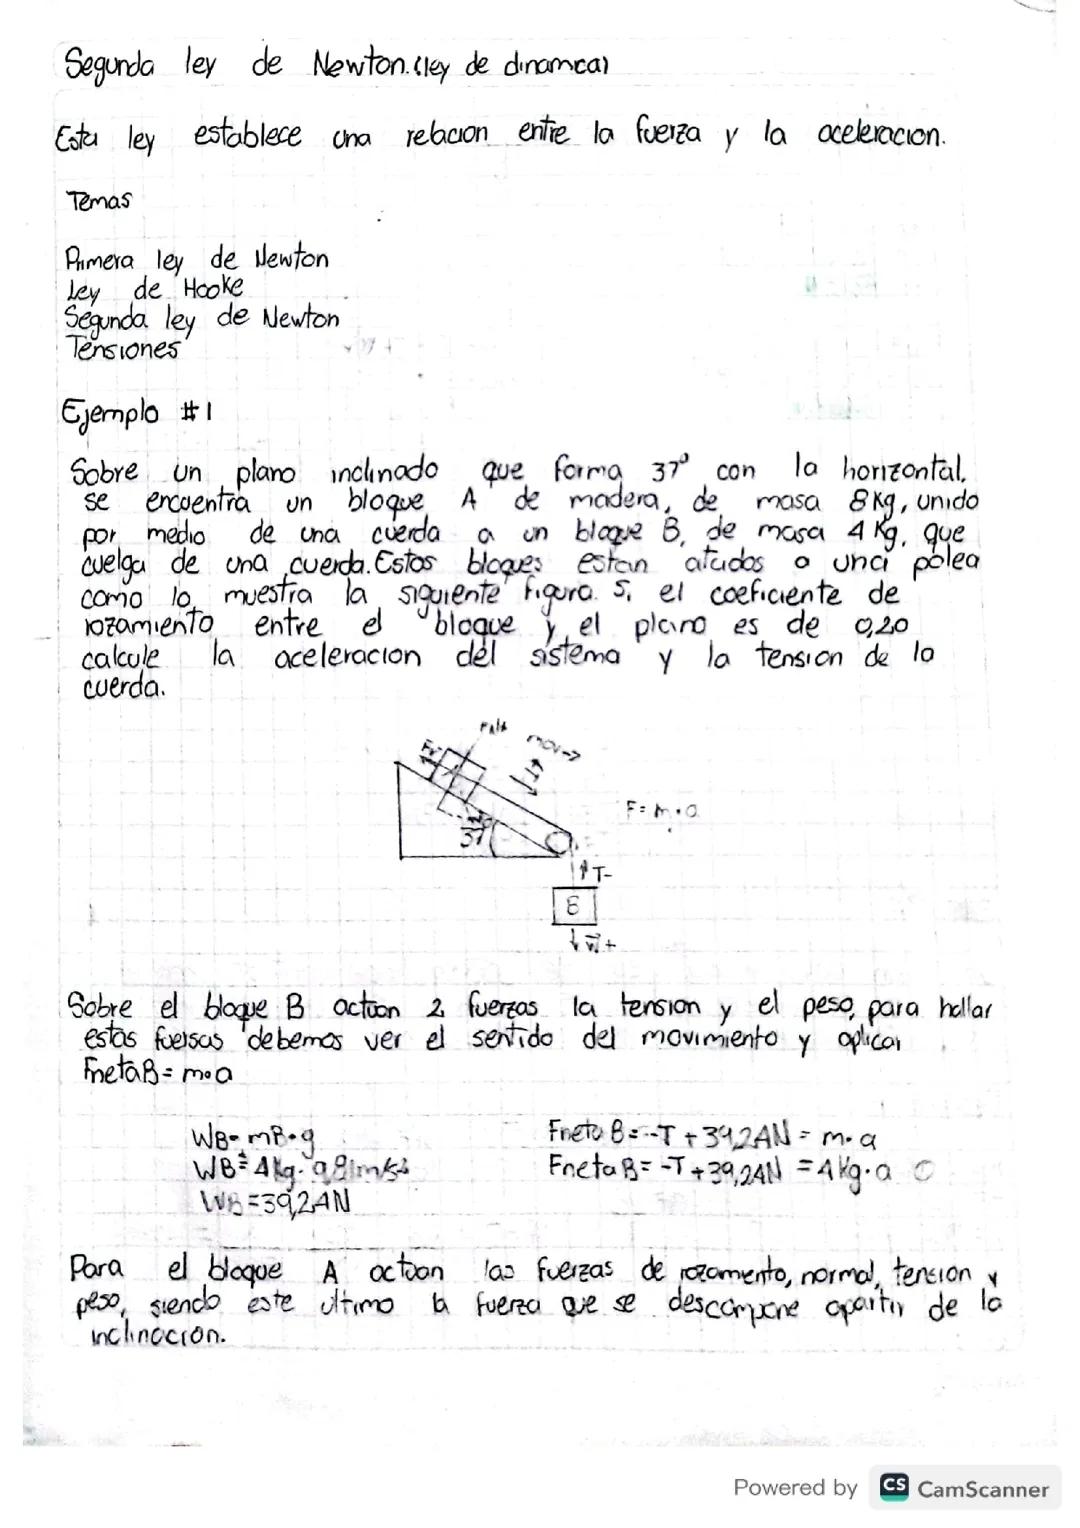 Segunda ley de Newton. (ley de dinamica)
Esta ley establece una relacion entre la fuerza y la aceleracion.
Temas
Primera ley de Newton
Ley de Hooke
Segunda ley de Newton
Tensiones
Ejemplo #1
Sobre un plano inclinado que forma 37° con la horizontal,
se encuentra un bloque A de madera, de masa 8Kg, unido
por medio de una cuerda a un bloque B, de masa 4 Kg, que
cuelga de una cuerda. Estos bloques estan atados a una polea
como lo muestra la siguiente figura. Si el coeficiente de
rozamiento entre el bloque y el plano es de 0,20
calcule la aceleracion del sistema y la tension de la
cuerda.
mov→
Fr
37
F= m·a
T-
B
w+
Sobre el bloque B actuan 2 fuerzas la tension y el peso, para hallar
estas fuersas debemos ver el sentido del movimiento y aplicar
FnetaB= m·a
WB= mB·g
WB= 4kg·9,81m/s²
WB=39,24N
Fneta B= -T + 39,24N = m·a
Fneta B= -T+39,24N = 4Kg·a
Para el bloque A actuan las fuerzas de rozamiento, normal, tension y
peso, siendo este ultimo la fuerza que se descompone apartir de la
inclinación.
Powered by CS CamScanner